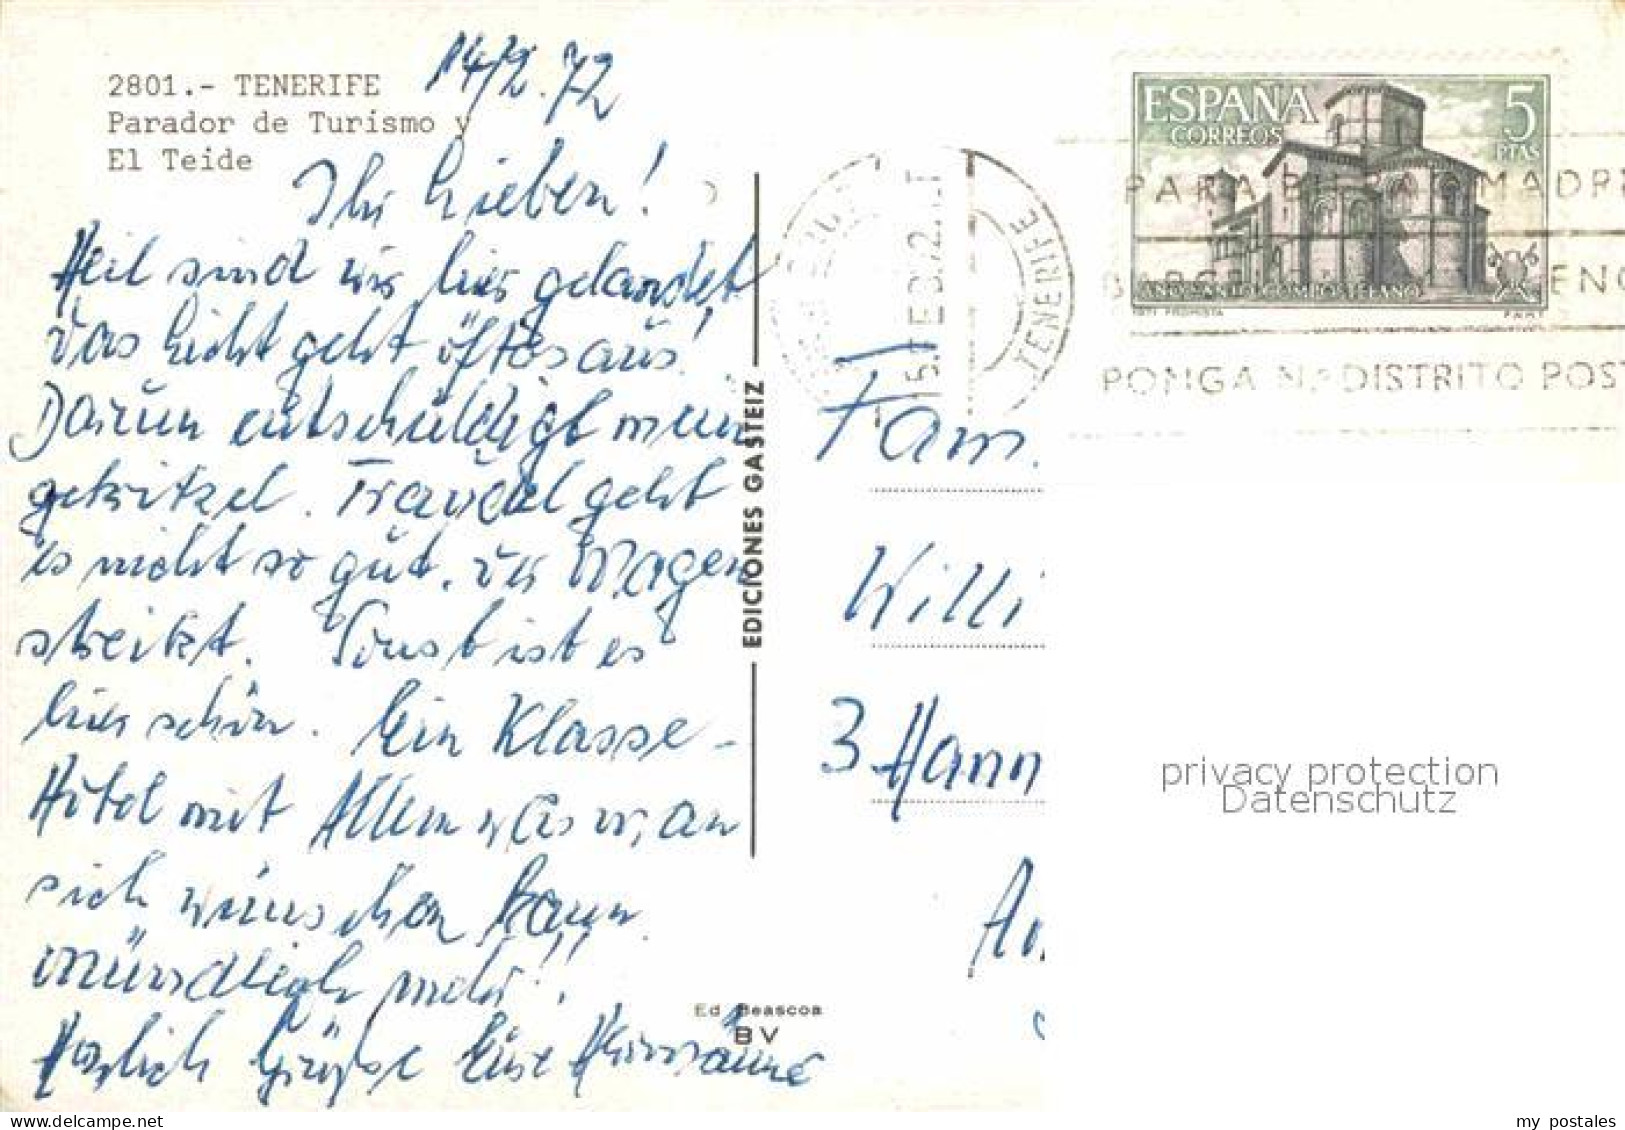 2801.- TENERIFE
Parador de Turismo y
El Teide
14/2.72
Ihr Lieben!
Heil sind wir hier gelandet
Das Licht geht öfters aus!
Darum entschuldigt mein
gekritzel. Traudel geht
es nicht so gut. der Wagen
streikt. Sonst ist es
hier schön. Ein Klasse-
Hotel mit Allem was man
sich wünschen kann
mündlich mehr!!
Herzlich Grüße Eure
EDICIONES GASTEIZ
Ed. Beascoa
BV
ESPAÑA 5
CORREOS PTAS
AÑO SANTO COMPOSTELANO
1971 FROMISTA F.N.M.T.
TENERIFE
PARA MADRI
PONGA DISTRITO POST
Fam.
Willi
3 Hann
privacy protection
Datenschutz
my postales